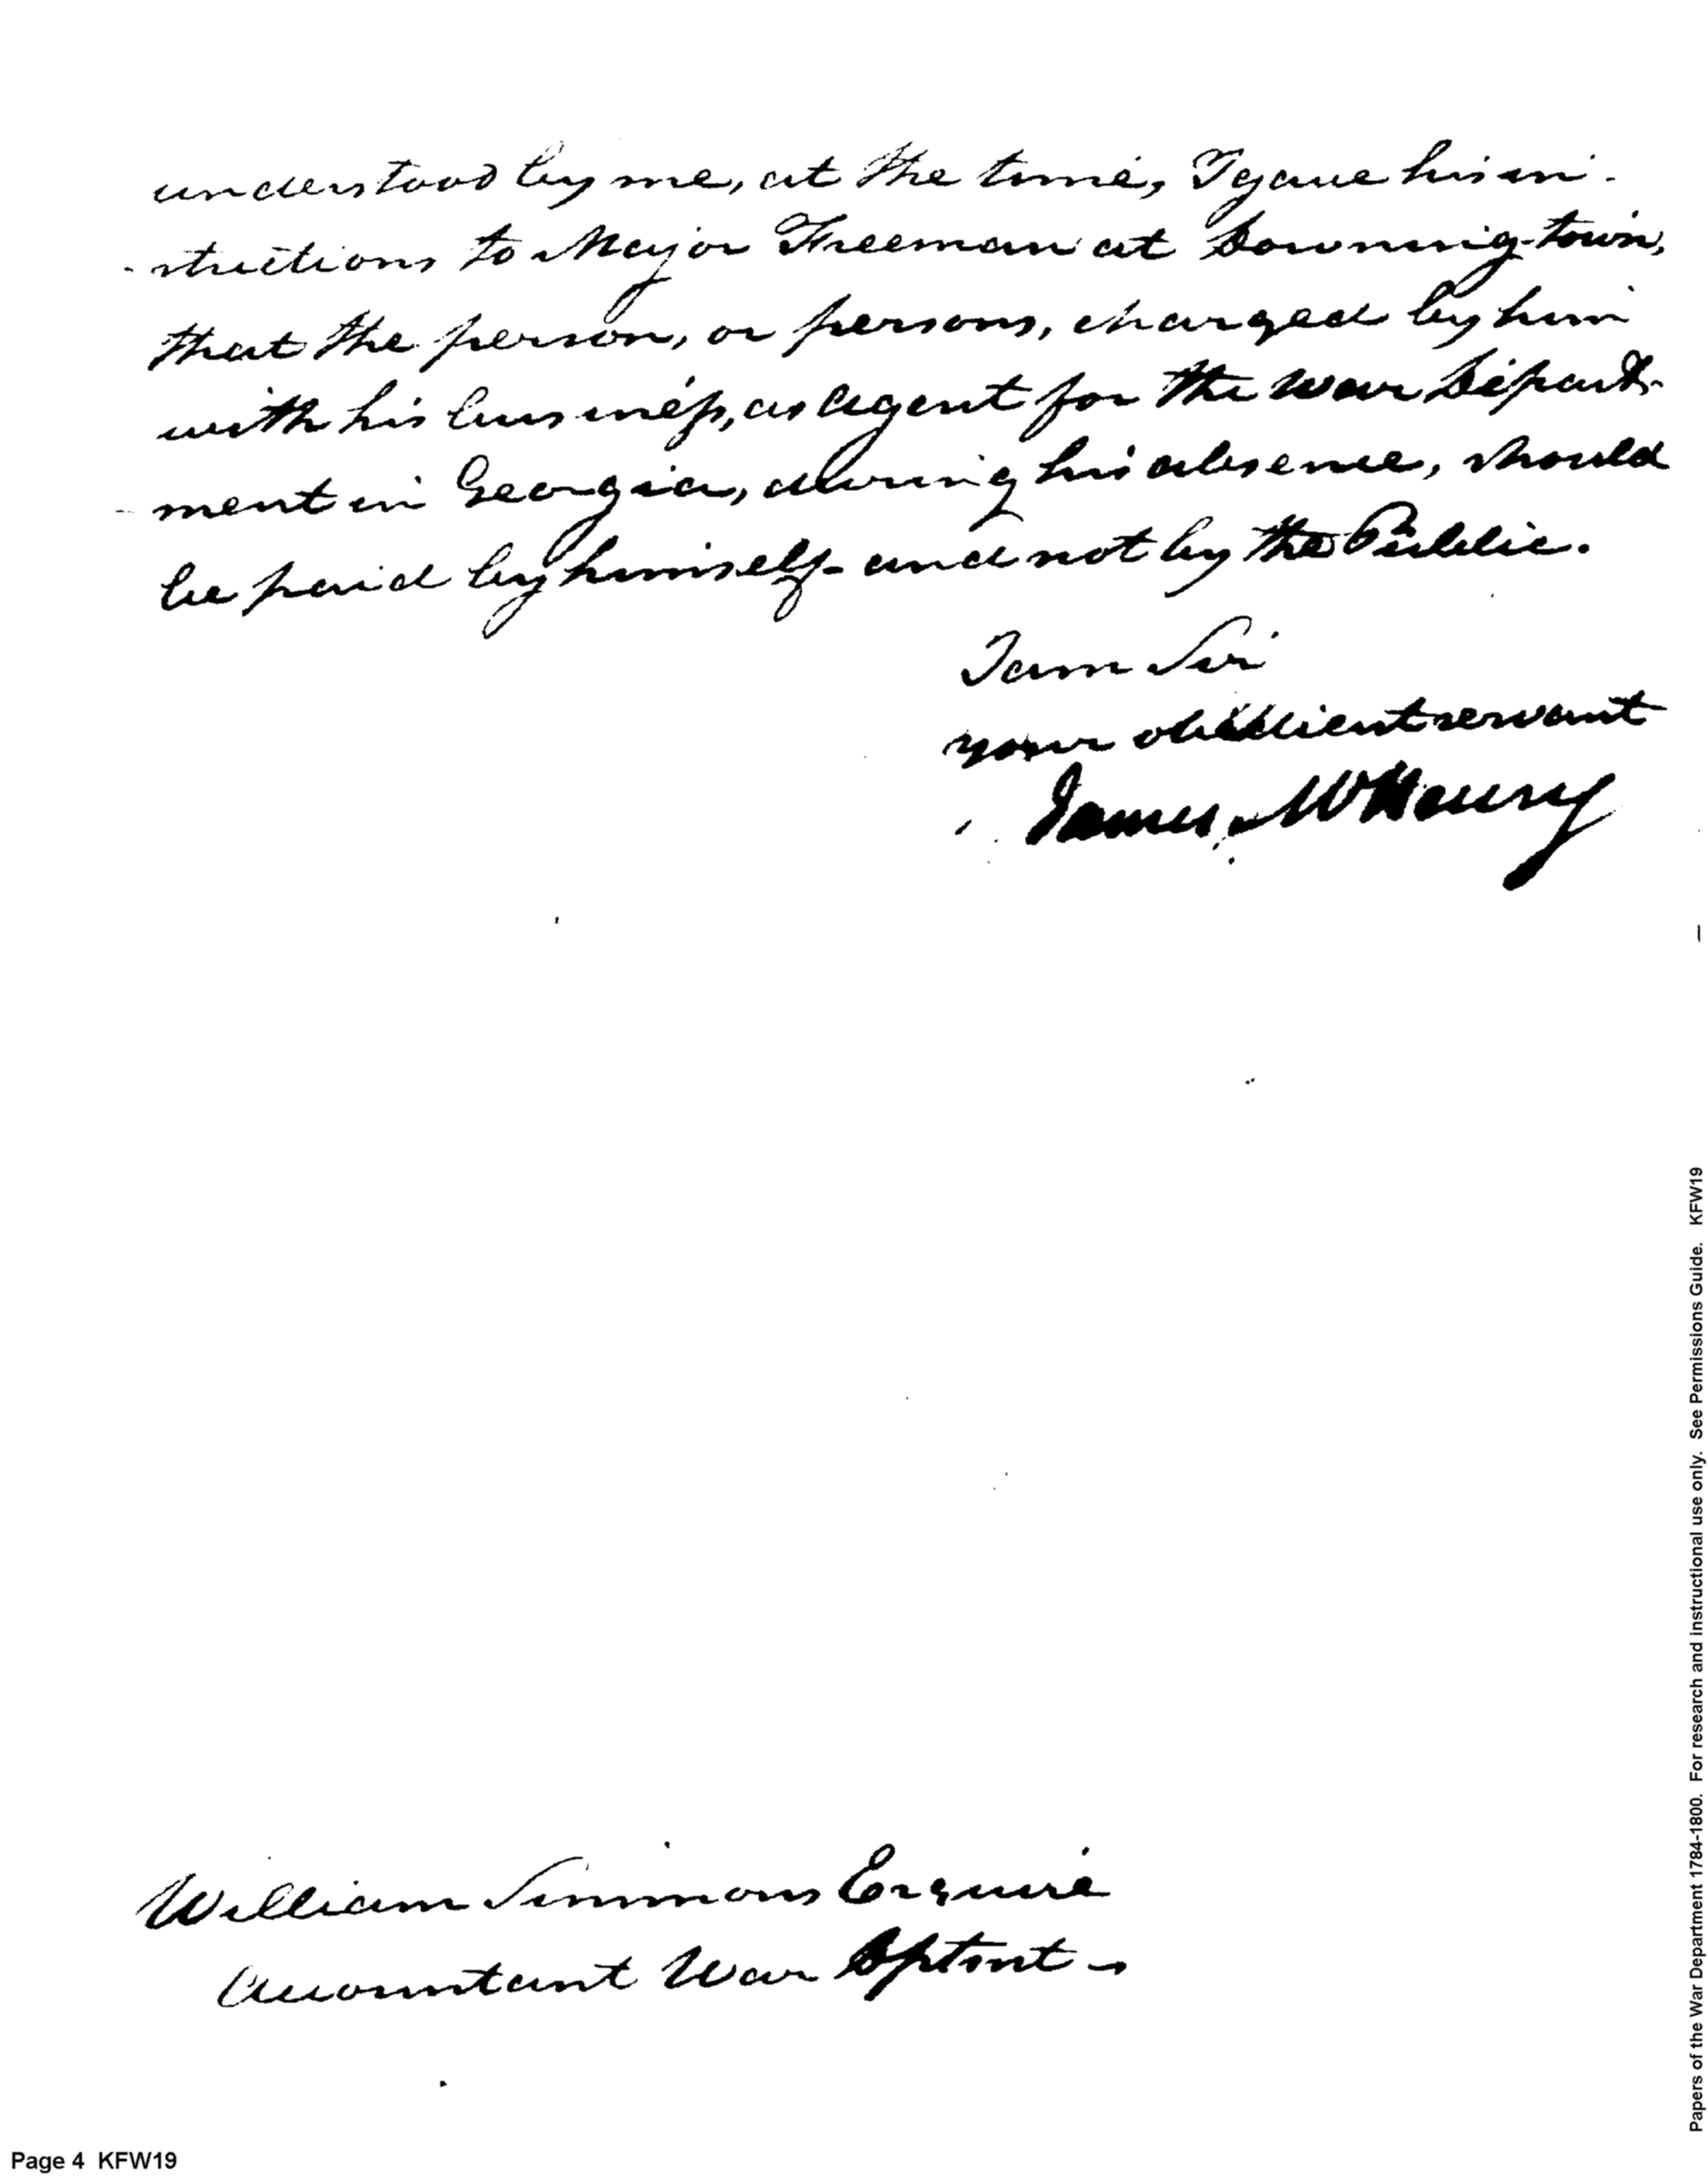 understood by me, at the time, I gave his in-
-structions to Major Freeman at Downing-town,
that the person, or persons, charged by him
with his business, as Agent for the War Depart-
-ment in Georgia, during his absence, should
be paid by himself and not by the Public.
I am Sir
your obedient servant
James McHenry
William Simmons Esquire
Accountant War Dptmt -
Page 4 KFW19
Papers of the War Department 1784-1800. For research and instructional use only. See Permissions Guide. KFW19